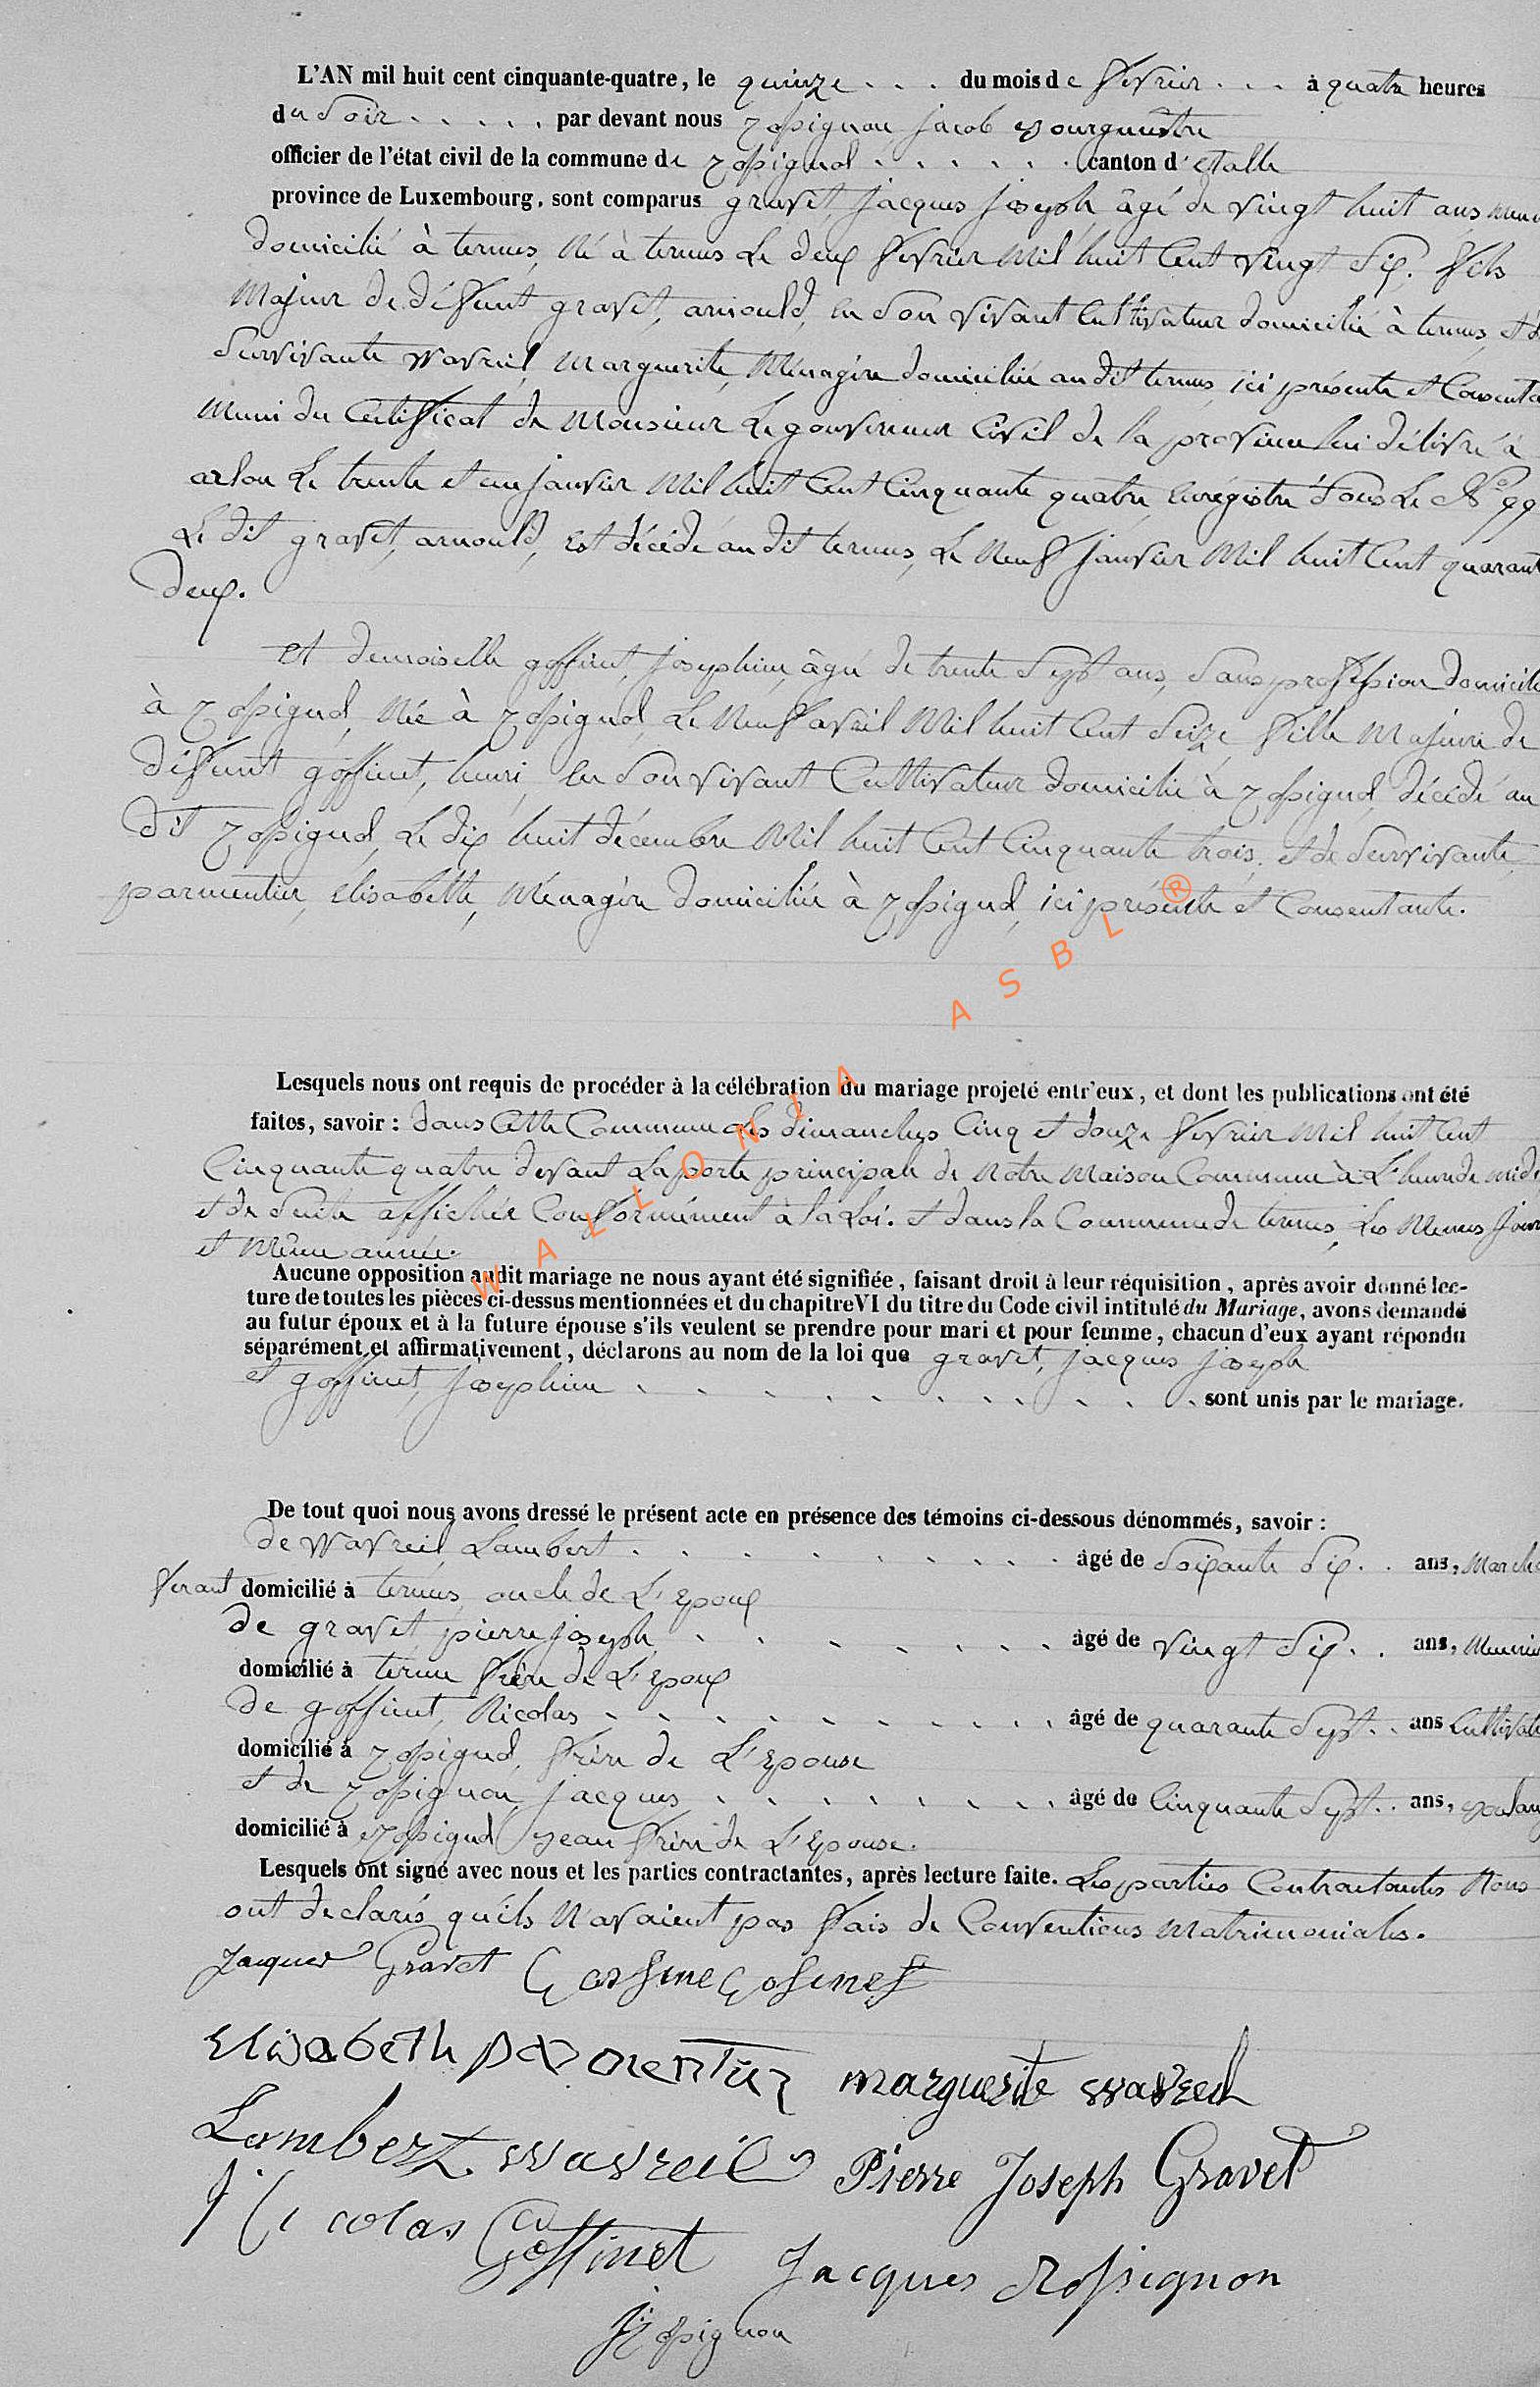 L'AN mil huit cent cinquante-quatre, le quinze . . . du mois de fevrier . . . à quatre heures
du soir . . . . . par devant nous rossignon, jacob bourguestre
officier de l'état civil de la commune de rossignol . . . . . . canton d'etalle
province de Luxembourg, sont comparus gravet, jacques joseph âgé de vingt huit ans,
domicilié à termes, né à termes le deux fevrier mil huit cent vingt six. fils
majeur de défunt gravet, arnould, en son vivant cultivateur domicilié à termes, et de
survivante wavreil, marguerite, ménagère domiciliée au dit termes, ici présente et consenta
muni du certificat de monsieur le gouverneur civil de la province lui délivré à
arlon le trente et un janvier mil huit cent cinquante quatre, enrégistré sous le N° 99
Le dit gravet, arnould, est décédé au dit termes, le neuf janvier mil huit cent quarant
deux.
et demoiselle goffinet, josephine, âgée de trente sept ans, sans profession domicilé
à rossignol, née à rossignol, le neuf avril mil huit cent seize fille majeure de
défunt goffinet, henri, en son vivant cultivateur domicilié à rossignol, décédé au
dit rossignol, le dix huit décembre mil huit cent cinquante trois, et de survivante
parmentier, élisabeth, ménagère domiciliée à rossignol, ici présente et consentante.
Lesquels nous ont requis de procéder à la célébration du mariage projeté entr'eux, et dont les publications ont été
faites, savoir : dans cette commune les dimanches cinq et douze fevrier mil huit cent
cinquante quatre devant la porte principale de notre maison commune à l'heure de midi
et de suite affichée conformément à la loi. et dans la commune de termes, les memes jour
et même année.
Aucune opposition audit mariage ne nous ayant été signifiée, faisant droit à leur réquisition, après avoir donné lec-
ture de toutes les pièces ci-dessus mentionnées et du chapitre VI du titre du Code civil intitulé du Mariage, avons demandé
au futur époux et à la future épouse s'ils veulent se prendre pour mari et pour femme, chacun d'eux ayant répondu
séparément et affirmativement, déclarons au nom de la loi que gravet, jacques joseph
et goffinet, josephine . . . . . . . . . sont unis par le mariage.
De tout quoi nous avons dressé le présent acte en présence des témoins ci-dessous dénommés, savoir :
de wavreil, Lambert . . . . . . . . . âgé de soixante six . . ans, march
ferant domicilié à termes, oncle de l'epoux
de gravet, pierre joseph . . . . . . . âgé de vingt six . . ans, meunie
domicilié à terme frère de l'epoux
de goffinet, Nicolas . . . . . . . . . âgé de quarante sept . . ans cultivate
domicilié à rossignol, frère de l'epouse
et de rossignon, jacques . . . . . . . . âgé de cinquante sept . . ans, boulang
domicilié à rossignol beau frère de l'epouse.
Lesquels ont signé avec nous et les parties contractantes, après lecture faite. Les parties contractantes nous
ont declarés qu'ils n'avaient pas fais de conventions matrimoniales.
Jacques Gravet Gosfine Gofinet
Elisabeth parmentier marguerite wavreil
Lambert wavreil Pierre Joseph Gravet
Nicolas Goffinet Jacques Rossignon
J Rossignon
WALLONIA ASBL ®